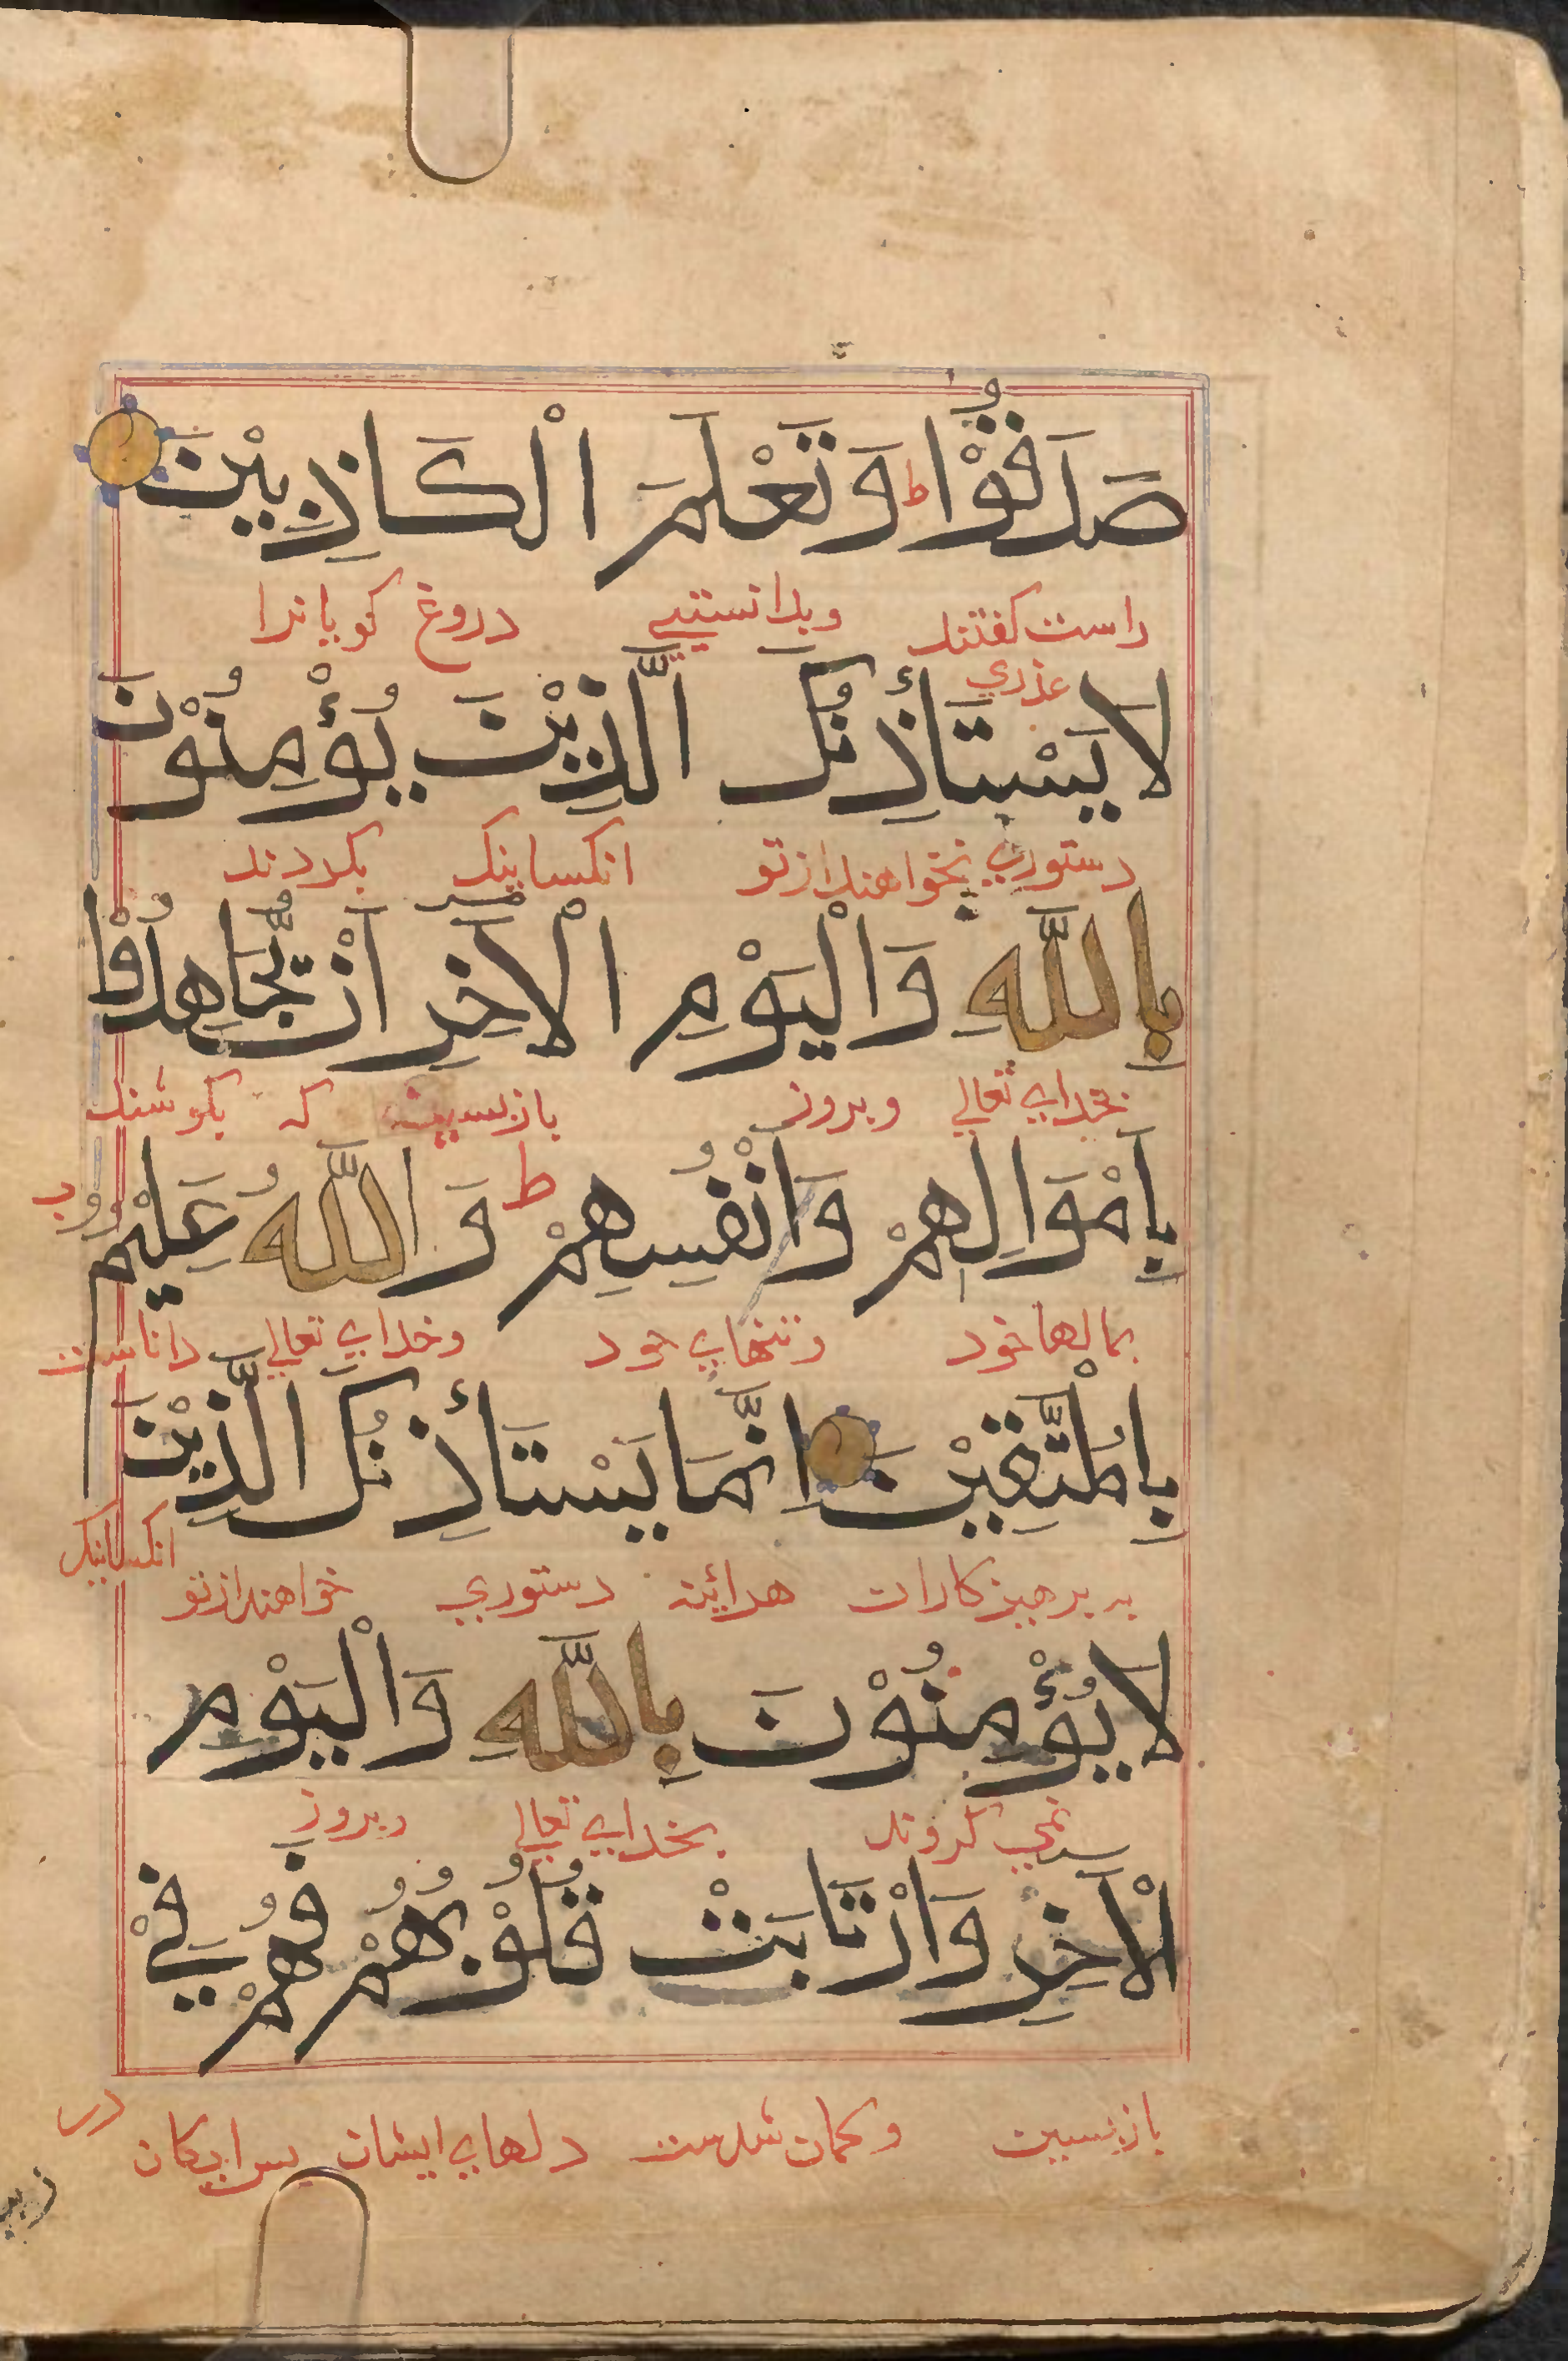 صَدَقُوْا ط وَتَعْلَمَ الْكَاذِبِيْنَ
راست كفتند وبدانستيى دروغ كويانرا
عذري
لَا يَسْتَأْذِنُكَ الَّذِيْنَ يُؤْمِنُوْنَ
دستوري نخواهند ازتو انكسانيك بكردند
بِاللَّهِ وَالْيَوْمِ الْاٰخِرِ اَنْ يُّجَاهِدُوْا
بخداي تعالي وبروز بازپسين كه بكوشند
بِاَمْوَالِهِمْ وَاَنْفُسِهِمْ ط وَاللَّهُ عَلِيْمٌ
بمالها خود وتنهاي خود وخداي تعالي داناست
بِالْمُتَّقِيْنَ اِنَّمَا يَسْتَأْذِنُكَ الَّذِيْنَ
به پرهيزكاران هرآئينه دستوري خواهند ازتو انكسانيك
لَا يُؤْمِنُوْنَ بِاللَّهِ وَالْيَوْمِ
نمي كروند بخداي تعالي وبروز
الْاٰخِرِ وَارْتَابَتْ قُلُوْبُهُمْ فَهُمْ فِيْ
بازپسين وكمان شدست دلهاي ايشان پس ايكان در